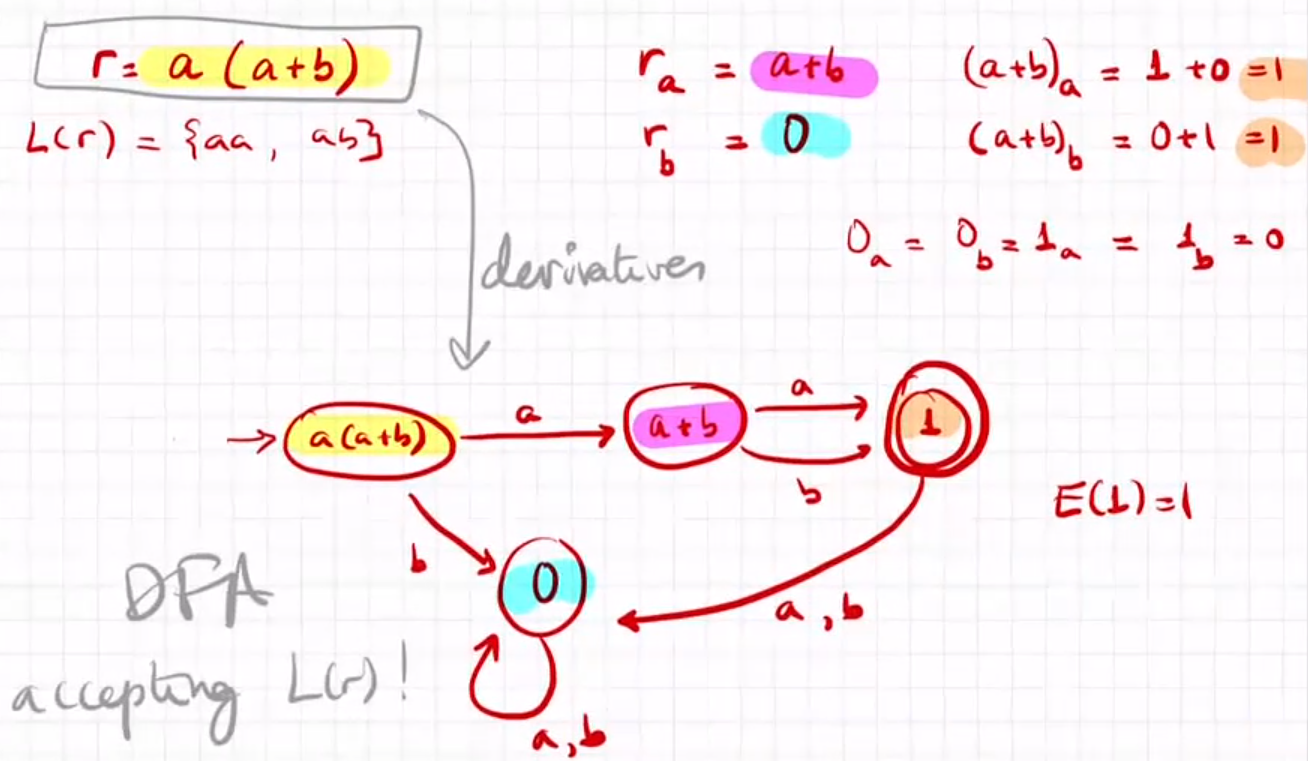 r = a (a+b)
L(r) = {aa, ab}
r_a = a+b
(a+b)_a = 1 + 0 = 1
r_b = 0
(a+b)_b = 0+1 = 1
0_a = 0_b = 1_a = 1_b = 0
derivatives
a(a+b)
a
a+b
a
b
1
E(1) = 1
b
0
a, b
a, b
DFA
accepting L(r)!